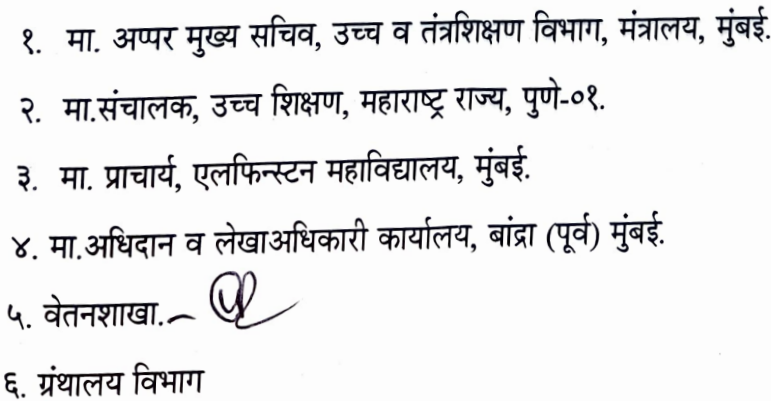 १. मा. अप्पर मुख्य सचिव, उच्च व तंत्रशिक्षण विभाग, मंत्रालय, मुंबई.
२. मा.संचालक, उच्च शिक्षण, महाराष्ट्र राज्य, पुणे-०१.
३. मा. प्राचार्य, एलफिन्स्टन महाविद्यालय, मुंबई.
४. मा.अधिदान व लेखाअधिकारी कार्यालय, बांद्रा (पूर्व) मुंबई.
५. वेतनशाखा.
६. ग्रंथालय विभाग